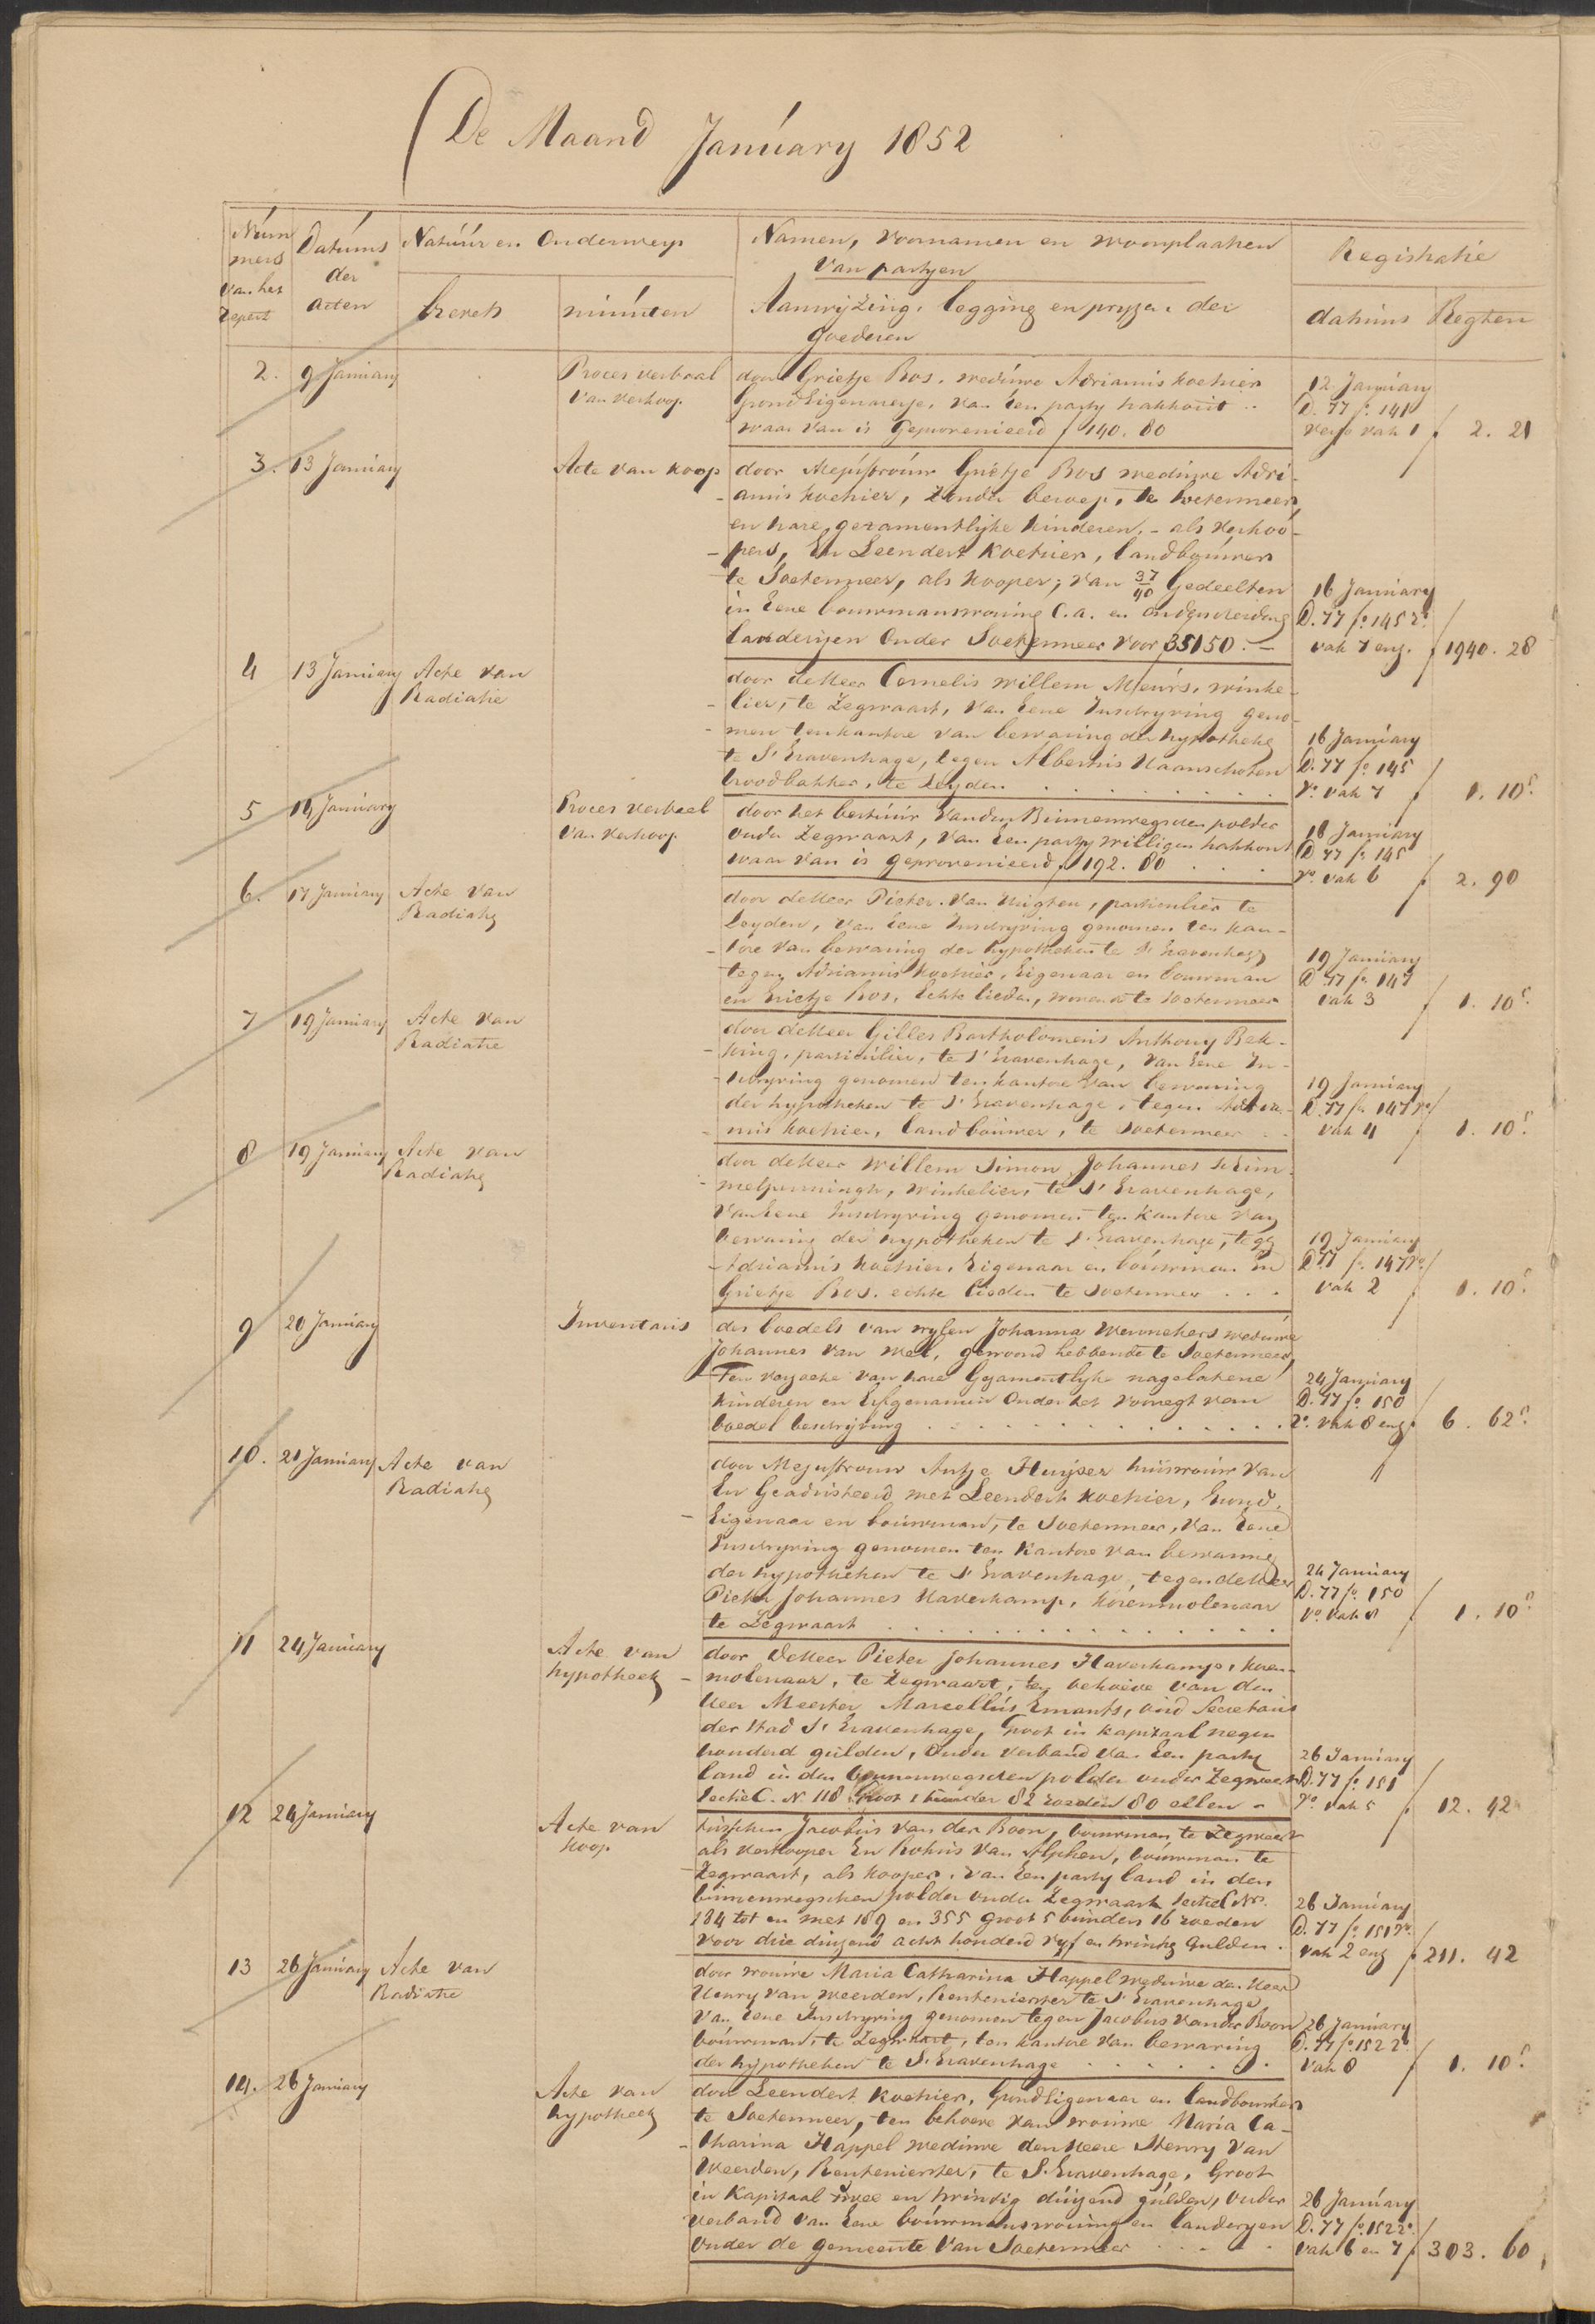 De Maand January 1852
Num
mers
van het
repert
Datums
der
acten
Natuur en Onderwerp
brevets
minuten
Namen, Voornamen en woonplaatsen
van partyen
Aanwyzing, legging en pryzen der
goederen
Registratie
datums Regten
2. 9 January
Proces verbaal
van verkoop
door Grietje Bos, weduwe Adrianus Koetsier
grondEigenaresse, van een party hakhout ..
waar van is geprovenieerd ƒ 140. 80
12 January
D. 77 fo. 141
verso vak 1 ƒ 2. 21
3. 13 January
Acte van koop
door Mejufvrouw Grietje Bos weduwe Adri-
anus Koetsier, zonder beroep, te Soetermeer,
en hare gezamentlyke kinderen, - als verkoo-
pers, En Leendert Koetsier, landbouwer
te Soetermeer, als Kooper; van 37/40 gedeelten
in Eene bouwmanswoning C.a. en onderscheidene
landeryen Onder Soetermeer voor ƒ 35150. -
16 January
D. 77 fo. 145 ro.
vak 7 enz. ƒ 1940. 28
4 13 January Acte van
Radiatie
door de Heer Cornelis Willem Meurs, winke-
lier, te Zegwaart, van Eene Inschryving geno-
men ten kantore van bewaring der hypotheken
te S'Gravenhage, tegen Albertus Haanschoten
broodbakker, te Leyden
16 January
D. 77 fo 145
vo. vak 7 ƒ 1. 10 5
5 14 January
Proces verbaal
van verkoop
door het bestuur van den Binnenwegschen polder
onder Zegwaart, van Een party willigen hakhout
waar van is geprovenieerd ƒ 192. 80
16 January
D 77 fo 145
vo. vak 6 ƒ 2. 90
6. 17 January Acte van
Radiatie
door de Heer Pieter van , particulier te
Leyden, van Eene Inschryving genomen ten kan-
tore van bewaring der hypotheken te S'Gravenhage
tegen Adrianus Koetsier, Eigenaar en bouwman
en Grietje Bos, Echte lieden, wonende te Soetermeer
19 January
D 77 fo 147
vak 3 ƒ 1. 10 5
7 19 January Acte van
Radiatie
door de Heer Gilles Bartholomeus Anthony Bek-
king, particulier, te S'Gravenhage, van Eene In-
schryving genomen ten kantore van bewaring
der hypotheken te S'Gravenhage, tegen Adria-
nus Koetsier, landbouwer, te Soetermeer
19 January
D. 77 fo 147 vo
vak 4 ƒ 1. 10 5
8 19 January Acte van
Radiatie
door de Heer Willem Simon Johannes Schim-
melpenningh, winkelier, te S'Gravenhage,
van Eene Inschryving genomen ten kantore van
bewaring der hypotheken te S'Gravenhage, tegen
Adrianus Koetsier, Eigenaar en bouwman en
Grietje Bos, echte lieden te Soetermeer
19 January
D 77 fo. 147 vo
vak 2 ƒ 1. 10 5
9 20 January
Inventaris
des boedels van wylen Johanna weduwe
Johannes van Mel, gewoond hebbende te Soetermeer,
ten verzoeke van hare Gezamentlyke nagelatene
kinderen en Erfgenamen Onder het voorregt van
boedel beschryving
24 January
D. 77 fo. 150
ro. vak 8 enz ƒ 6. 62 5
10. 21 January Acte van
Radiatie
door Mejufvrouw Antje Huyser huisvrouw van
En Geadsisteerd met Leendert Koetsier, Grond-
Eigenaar en bouwman, te Soetermeer, van Eene
Inschryving genomen ten kantore van bewaring
der hypotheken te S'Gravenhage, tegen de Heer
Pieter Johannes Haverkamp, korenmolenaar
te Zegwaart
24 January
D. 77 fo. 150
vo. vak 8 ƒ 1. 10 5
11 24 January
Acte van
hypotheek
door de Heer Pieter Johannes Haverkamp, koren-
molenaar, te Zegwaart, ten behoeve van den
Heer Meester Marcellus Emants, oud Secretaris
der Stad S'Gravenhage, Groot in kapitaal negen
honderd gulden, Onder verband van Een party
land in den binnenwegschen polder onder Zegwaart
Sectie C. N. 118 Groot 1 bunder 82 roeden 80 ellen -
26 January
D. 77 fo. 151
vo. vak 5 ƒ 12. 42
12 24 January
Acte van
koop
tusschen Jacobus van der Boon, bouwman te Zegwaart
als verkooper En Rokus van Alphen, bouwman te
Zegwaart, als kooper, van Een party land in den
binnenwegschen polder onder Zegwaart Sectie C Nos.
184 tot en met 189 en 355 groot 5 bunders 16 roeden
voor drie duizend acht honderd vyf en twintig Gulden.
26 January
D. 77 fo. 151 vo.
vak 2 enz ƒ 211. 42
13 26 January Acte van
Radiatie
door vrouwe Maria Catharina Happel weduwe den Heer
Henry van Weerden, Rentenierster te S'Gravenhage
van Eene Inschryving genomen tegen Jacobus van der Boon
bouwman, te Zegwaart, ten kantore van bewaring
der hypotheken te S'Gravenhage
26 January
D. 77 fo. 152 ro.
vak 8 ƒ 1. 10 5
14. 26 January
Acte van
hypotheek
door Leendert Koetsier, GrondEigenaar en landbouwer
te Soetermeer, ten behoeve van vrouwe Maria Ca-
tharina Happel weduwe den Heere Henry van
Weerden, Rentenierster, te S.Gravenhage, Groot
in Kapitaal twee en twintig duizend gulden, onder
verband van Eene bouwmanswoning en landeryen
onder de gemeente van Soetermeer
26 January
D. 77 fo. 152 ro.
vak 6 en 7 ƒ 303. 60